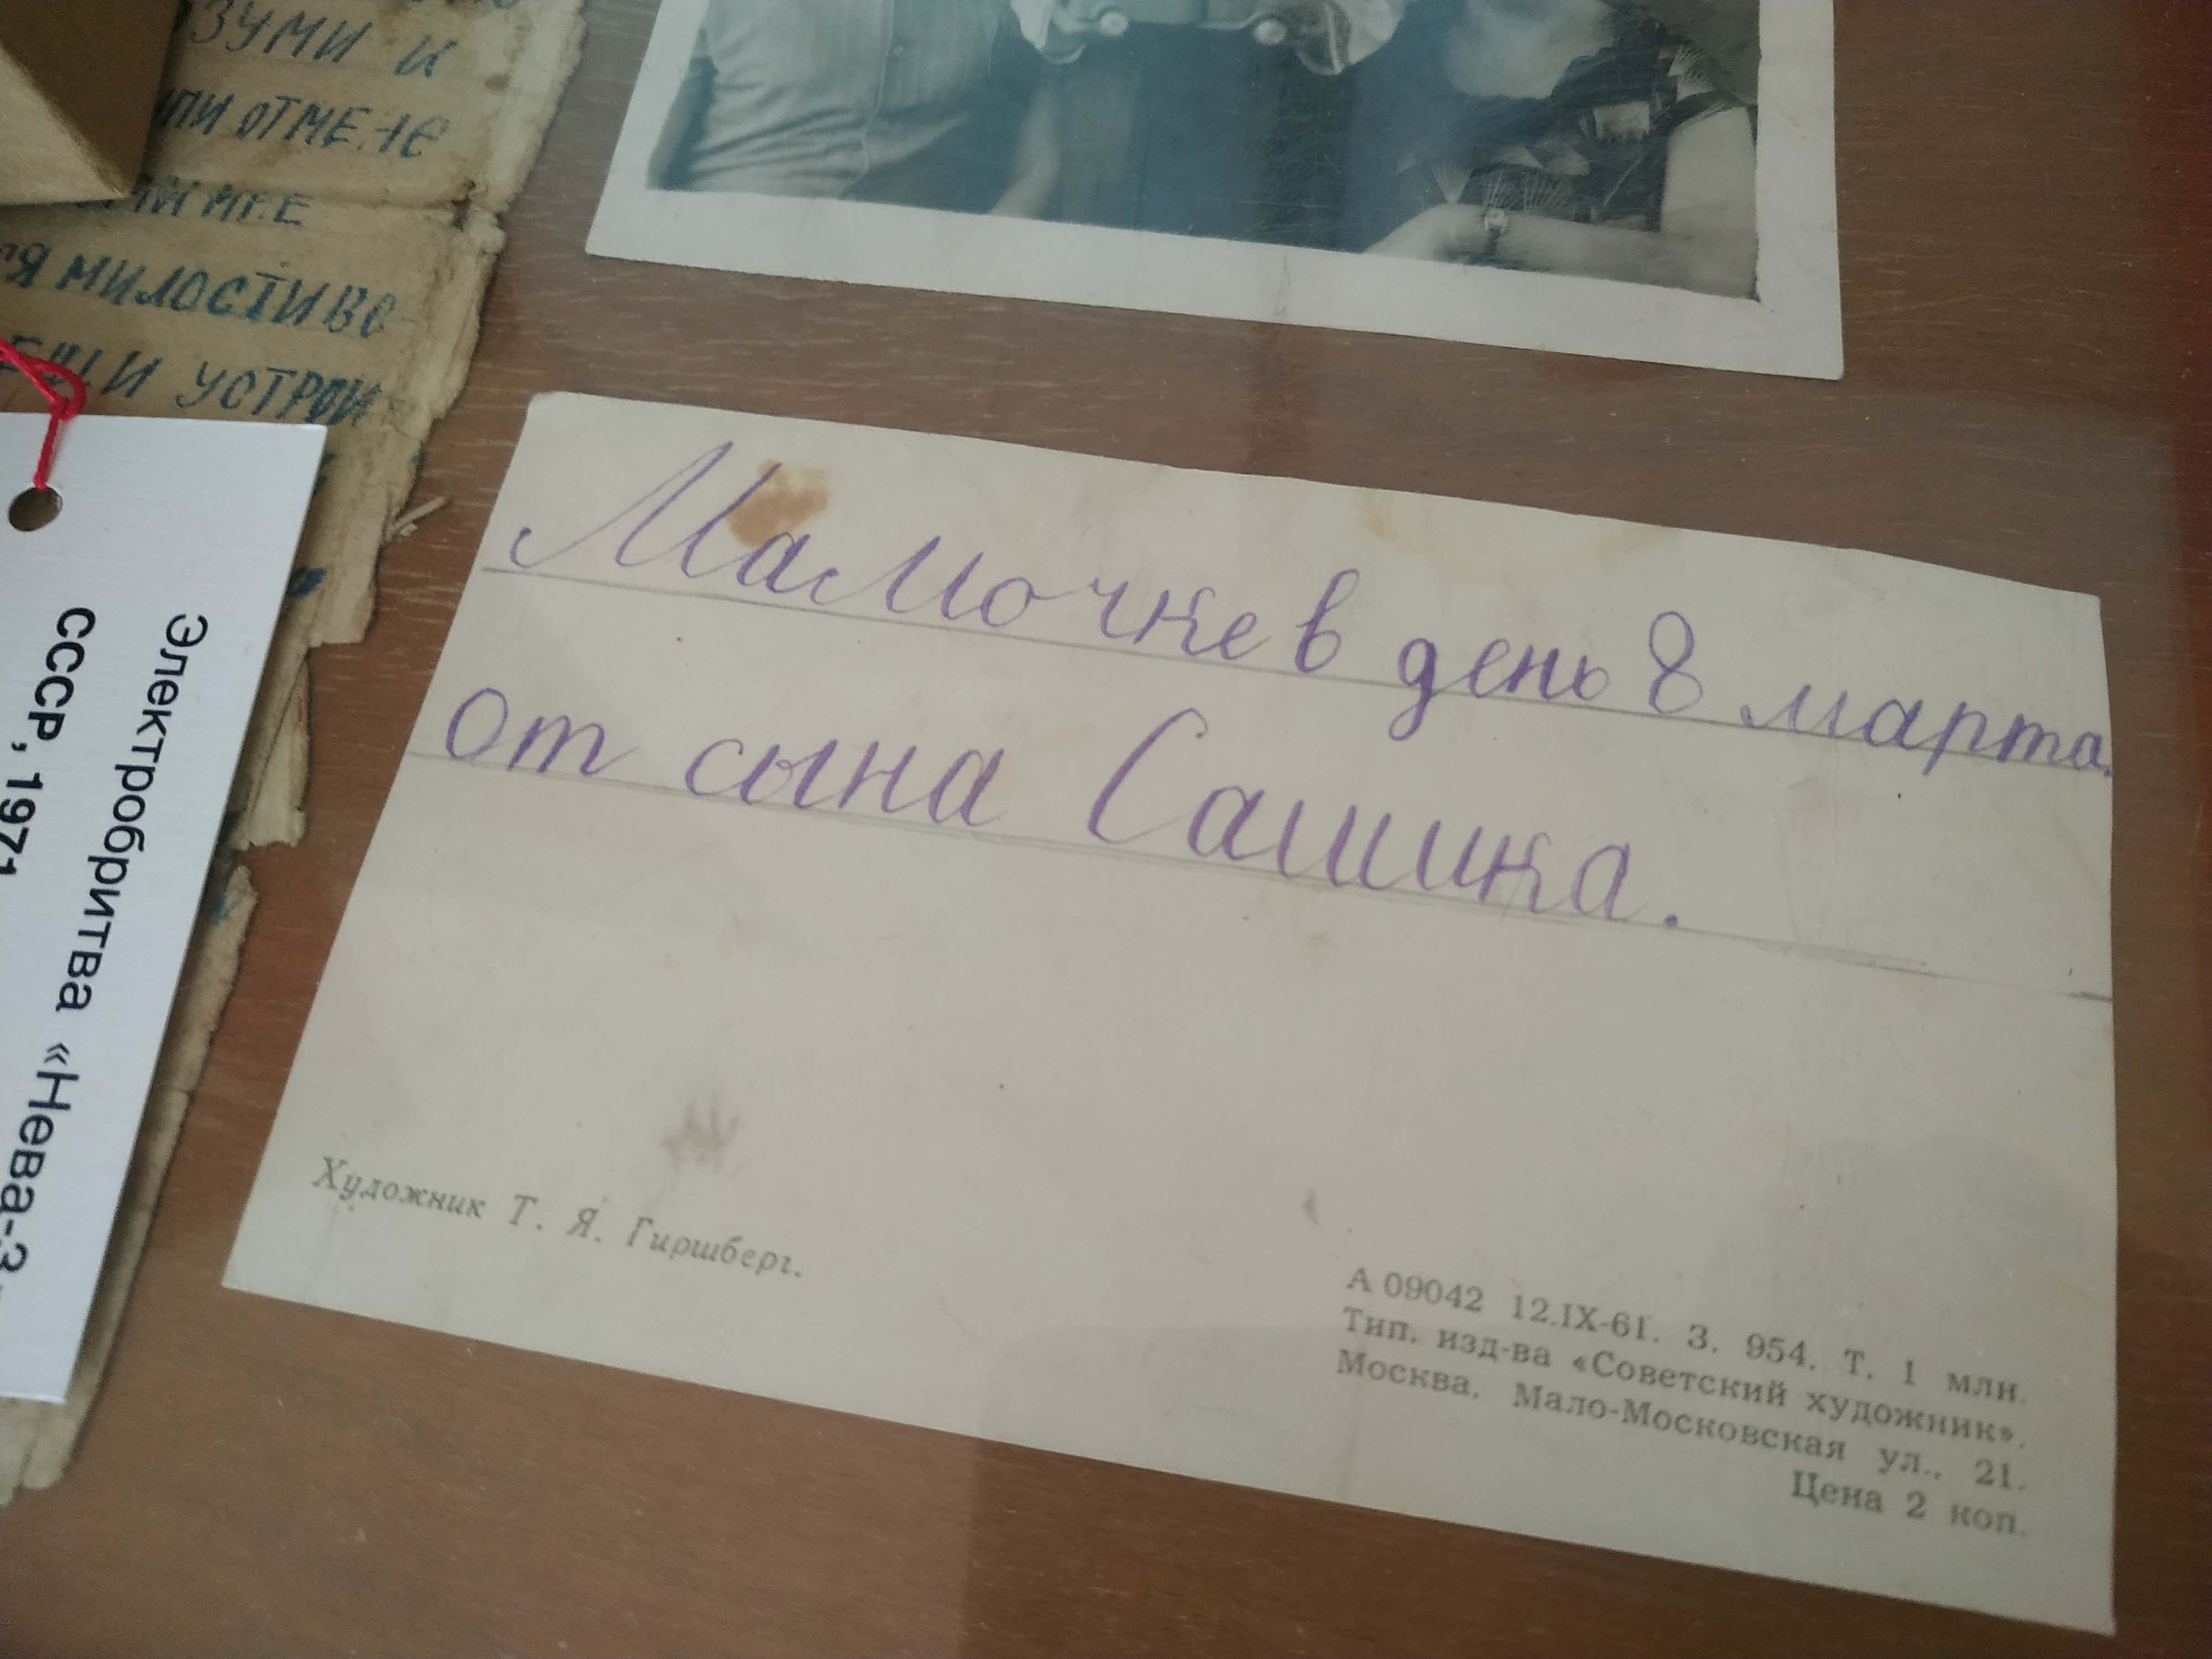 ЗУМИ И
ИЛИ ОТМЕНЕ
МИЛОСТИВО-
УСТРОИ
Электробритва «Нева-3
СССР, 1971
Мамочке в день 8 марта.
от сына Сашика.
Художник Т. Я. Гиршберг.
А 09042 12.IX-61. З. 954. Т. 1 млн.
Тип. изд-ва «Советский художник».
Москва. Мало-Московская ул., 21.
Цена 2 коп.